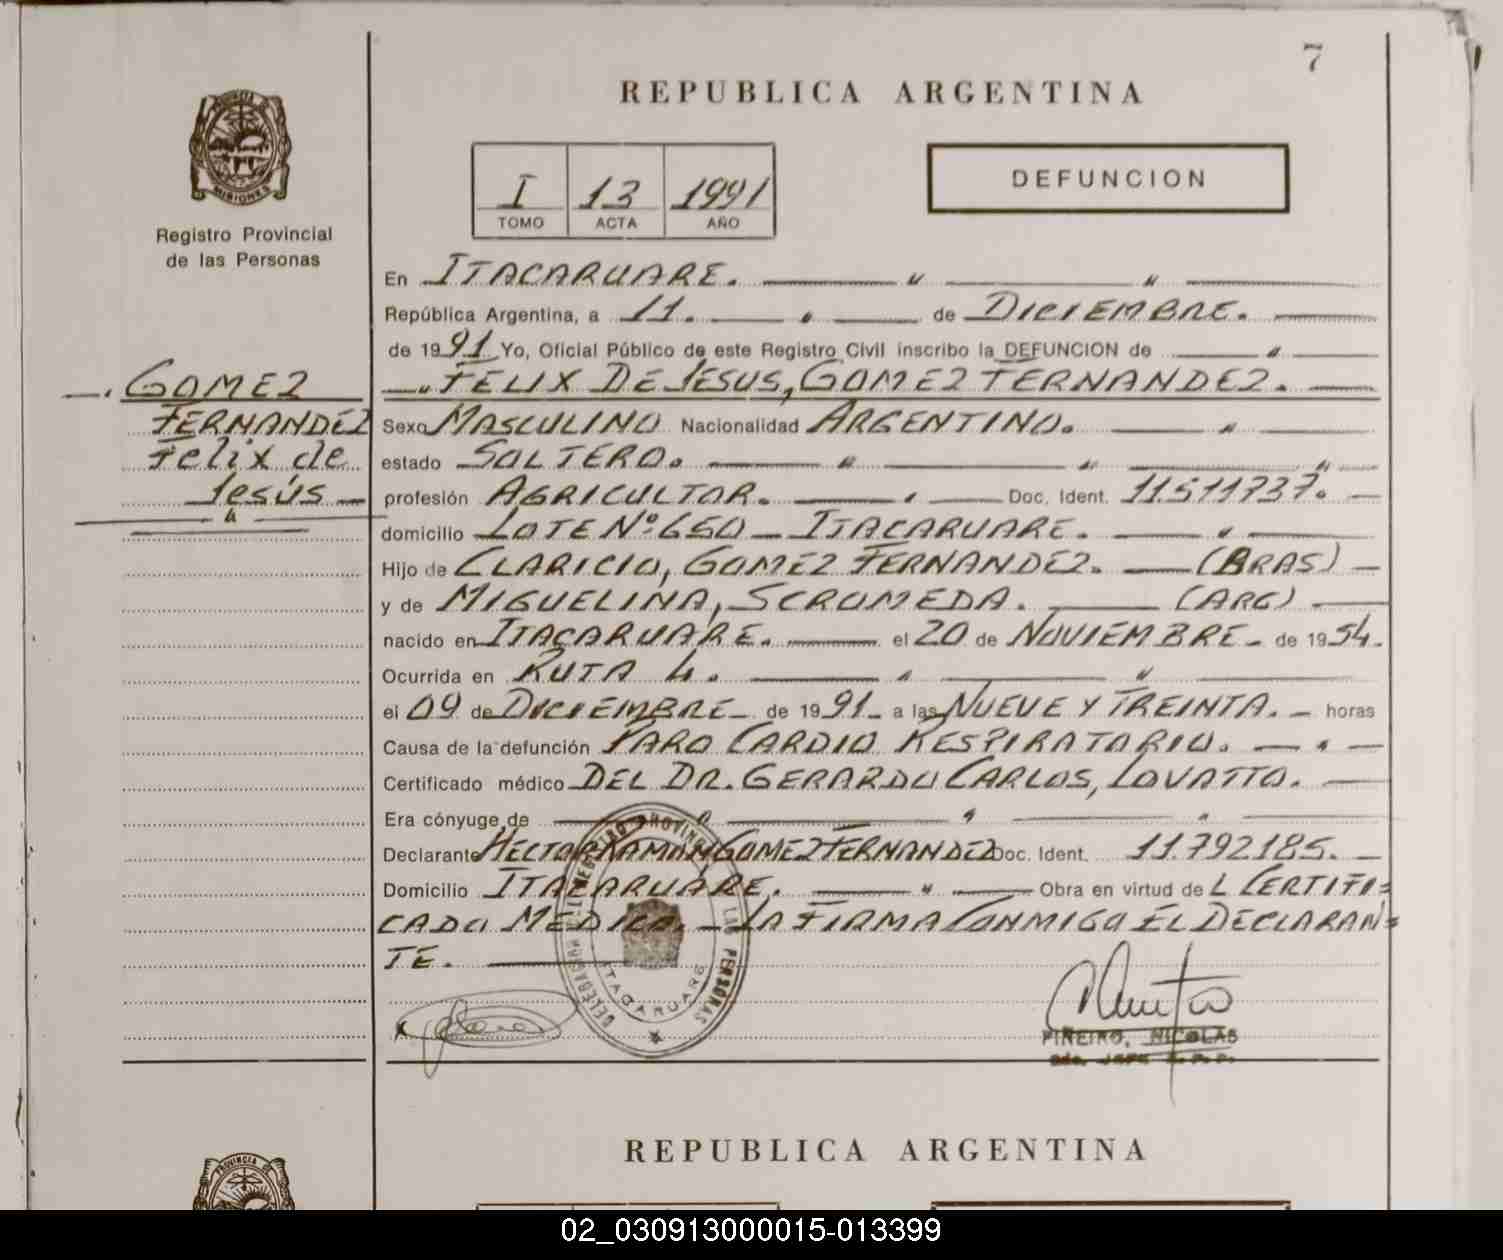 7
REPUBLICA ARGENTINA
PROVINCIA DE
MISIONES
Registro Provincial
de las Personas
I 13 1991
TOMO ACTA AÑO
DEFUNCION
En ITACARUARE. — " — " —
República Argentina, a 11. — " — de DICIEMBRE. —
de 1991 Yo, Oficial Público de este Registro Civil inscribo la DEFUNCION de — " —
—. GOMEZ
FERNANDEZ
Felix de
Jesús —
— " —
—. FELIX DE JESUS, GOMEZ FERNANDEZ. —
Sexo MASCULINO Nacionalidad ARGENTINO. — " —
estado SOLTERO. — " — " — "
profesión AGRICULTOR. — " — Doc. Ident. 11511737. —
domicilio LOTE Nº 650 — ITACARUARE. — " —
Hijo de CLARICIO, GOMEZ FERNANDEZ. — (BRAS) —
y de MIGUELINA, SCROMEDA. — (ARG) —
nacido en ITACARUARE. — el 20 de NOVIEMBRE — de 1954.
Ocurrida en RUTA 4. — " — " —
el 09 de DICIEMBRE — de 1991 — a las NUEVE Y TREINTA. — horas
Causa de la defunción PARO CARDIO RESPIRATORIO. — " —
Certificado médico DEL DR. GERARDO CARLOS, LOVATTO. —
Era cónyuge de — " — " — " —
Declarante HECTOR RAMON, GOMEZ FERNANDEZ Doc. Ident. 11.792185. —
Domicilio ITACARUARE. — " — Obra en virtud de L CERTIFI=
CADO MEDICO. — LA FIRMA CONMIGO EL DECLARAN=
TE. —
REGISTRO PROVINCIAL LAS PERSONAS
ITACARUARE
PIÑEIRO, NICOLAS
REPUBLICA ARGENTINA
PROVINCIA DE
02_030913000015-013399